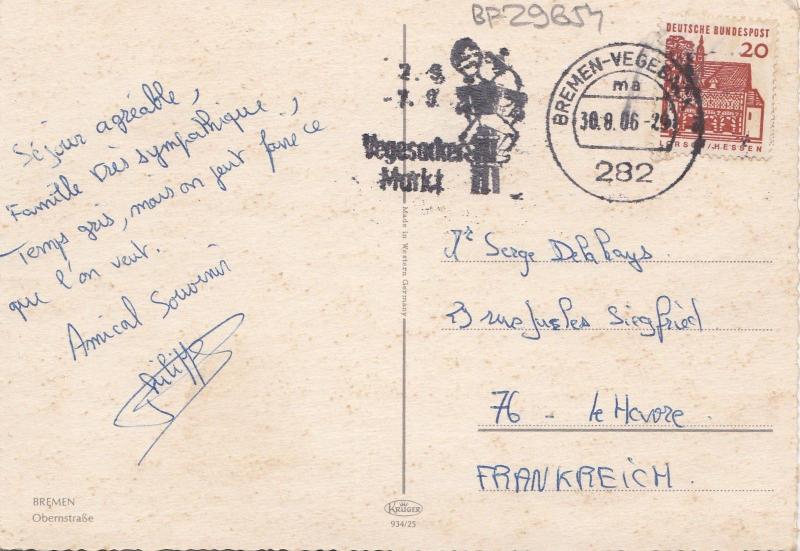 BF29B54
DEUTSCHE BUNDESPOST
20
LORSCH/HESSEN
BREMEN-VEGE
ma
30.8.06-2
282
2.9.
-7.9.
Vegesacker
Markt
Séjour agréable,
Famille très sympathique,
Temps gris, mais on peut faire ce
que l'on veut.
Amical Souvenir
Philippe
Mr Serge Delahays
23 rue Jules Siegfried
76 - le Havre.
FRANKREICH.
Made in Western Germany
BREMEN
Obernstraße
KRÜGER
934/25